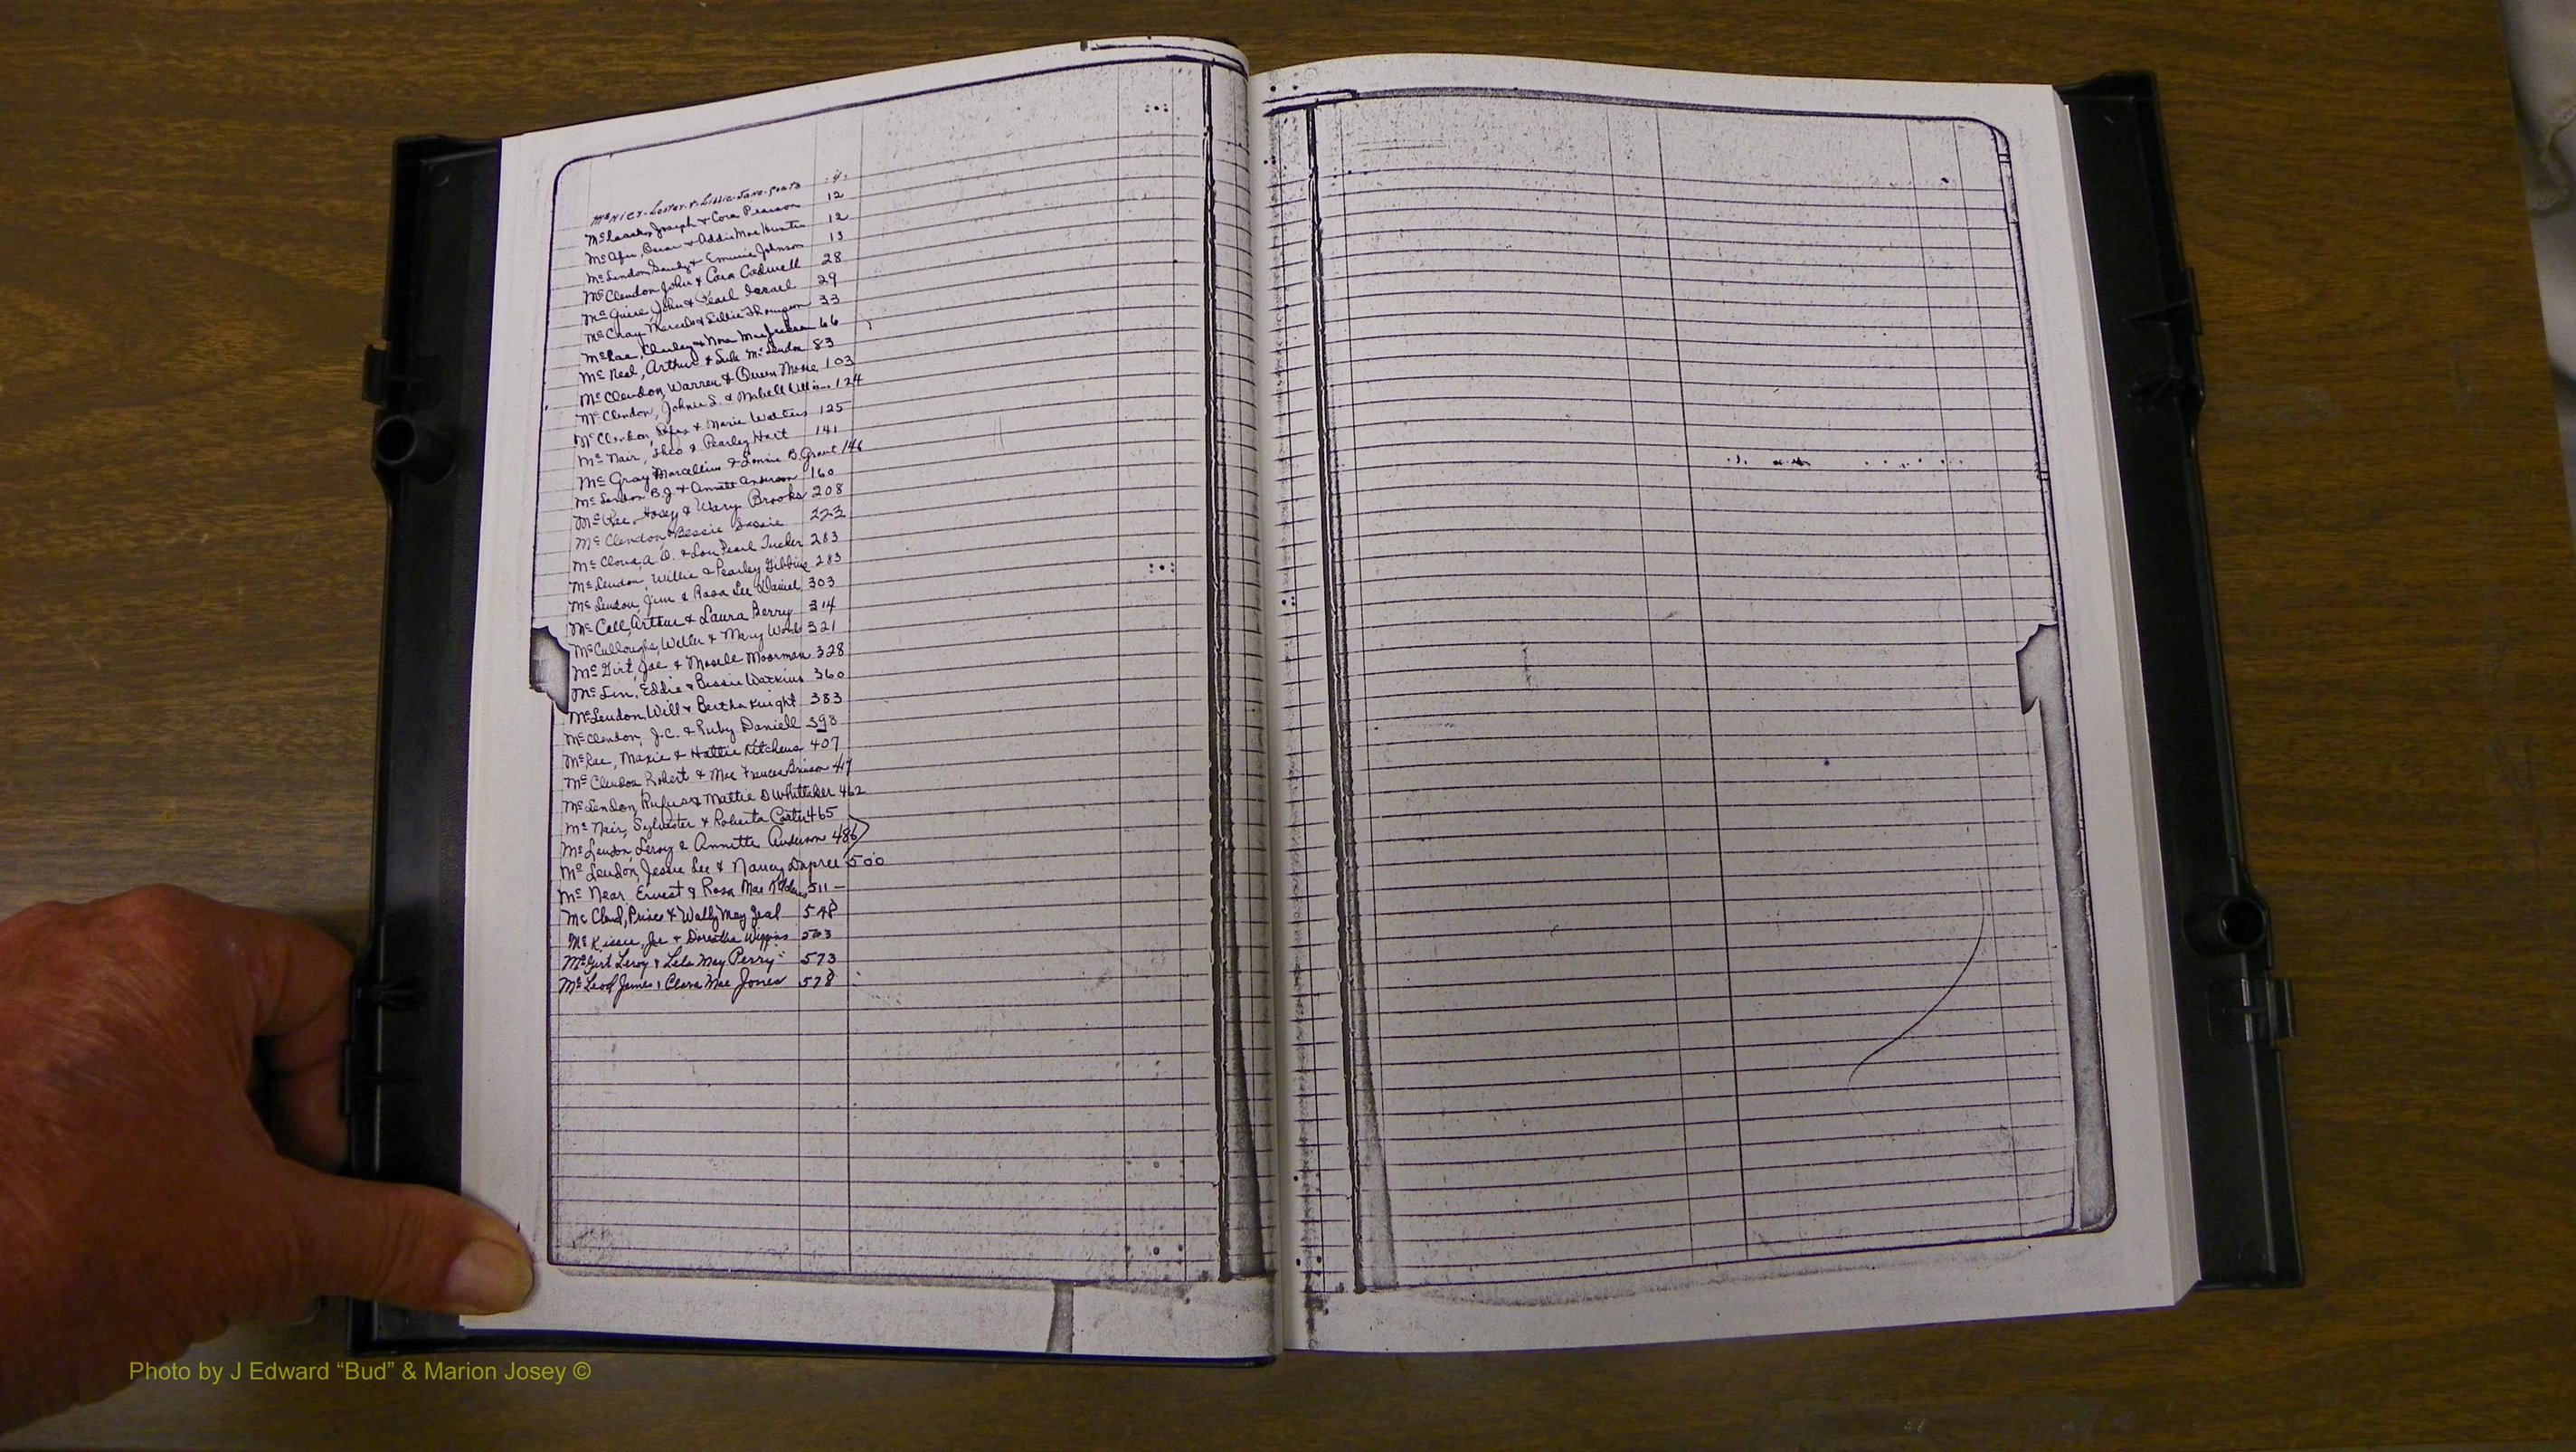 McNier, Lester & Lillie Jane 4
McIsaacks, Joseph & Cora Pearson 12
McAfee, Oscar & Addie Mae Hunter 12
McLendon, & Emmie Johnson 13
McClendon John & Cora Cadwell 28
McGuire, John & Pearl Israel 29
McCray, & Lillie 33
McRae, Charley & Nora Mae Jackson 66
McNeal, Arthur & Lula McLendon 83
McClendon, Warren & Queen Moore 103
McClendon, Johnie S. & Mabell 124
McClendon, Rufus & Marie Walters 125
McNair, Theo & Pearley Hart 141
McGray Marcellius & Lonnie B. Grant 146
McLendon B.J. & Annett Anderson 160
McRee, Hosey & Wary Brooks 208
McClendon & Bessie 223
McCloud, A.D. & Lou Pearl Tucker 283
McLendon, Willie & Pearley Gibbins 283
McLendon, Jim & Rosa Lee Daniel 303
McCall, Arthur & Laura Berry 314
McCullough, Welter & Mary Woods 321
McGirt, Joe & Mosele Moorman 328
McLin, Eddie & Bessie Watkins 360
McLendon, Will & Bertha Knight 383
McClendon, J.C. & Ruby Daniell 393
McRae, Maxie & Hattie Kitchens 407
McClendon Robert & Mae Frances Brinson 417
McLendon, Rufus & Mattie D Whittaker 462
McNair, Sylvester & Roberta Carter 465
McLendon, Leroy & Annette Anderson 486
McLendon, Jessie Lee & Nancy Dupree 500
McNear, Ernest & Rosa Mae 511 —
McCloud, Prince & Wally May Jeal 548
McKissic, Joe & Dorestha Wiggins 563
McGirt Leroy & Lela May Perry 573
McLeod James & Clara Mae Jones 578
Photo by J Edward “Bud” & Marion Josey ©